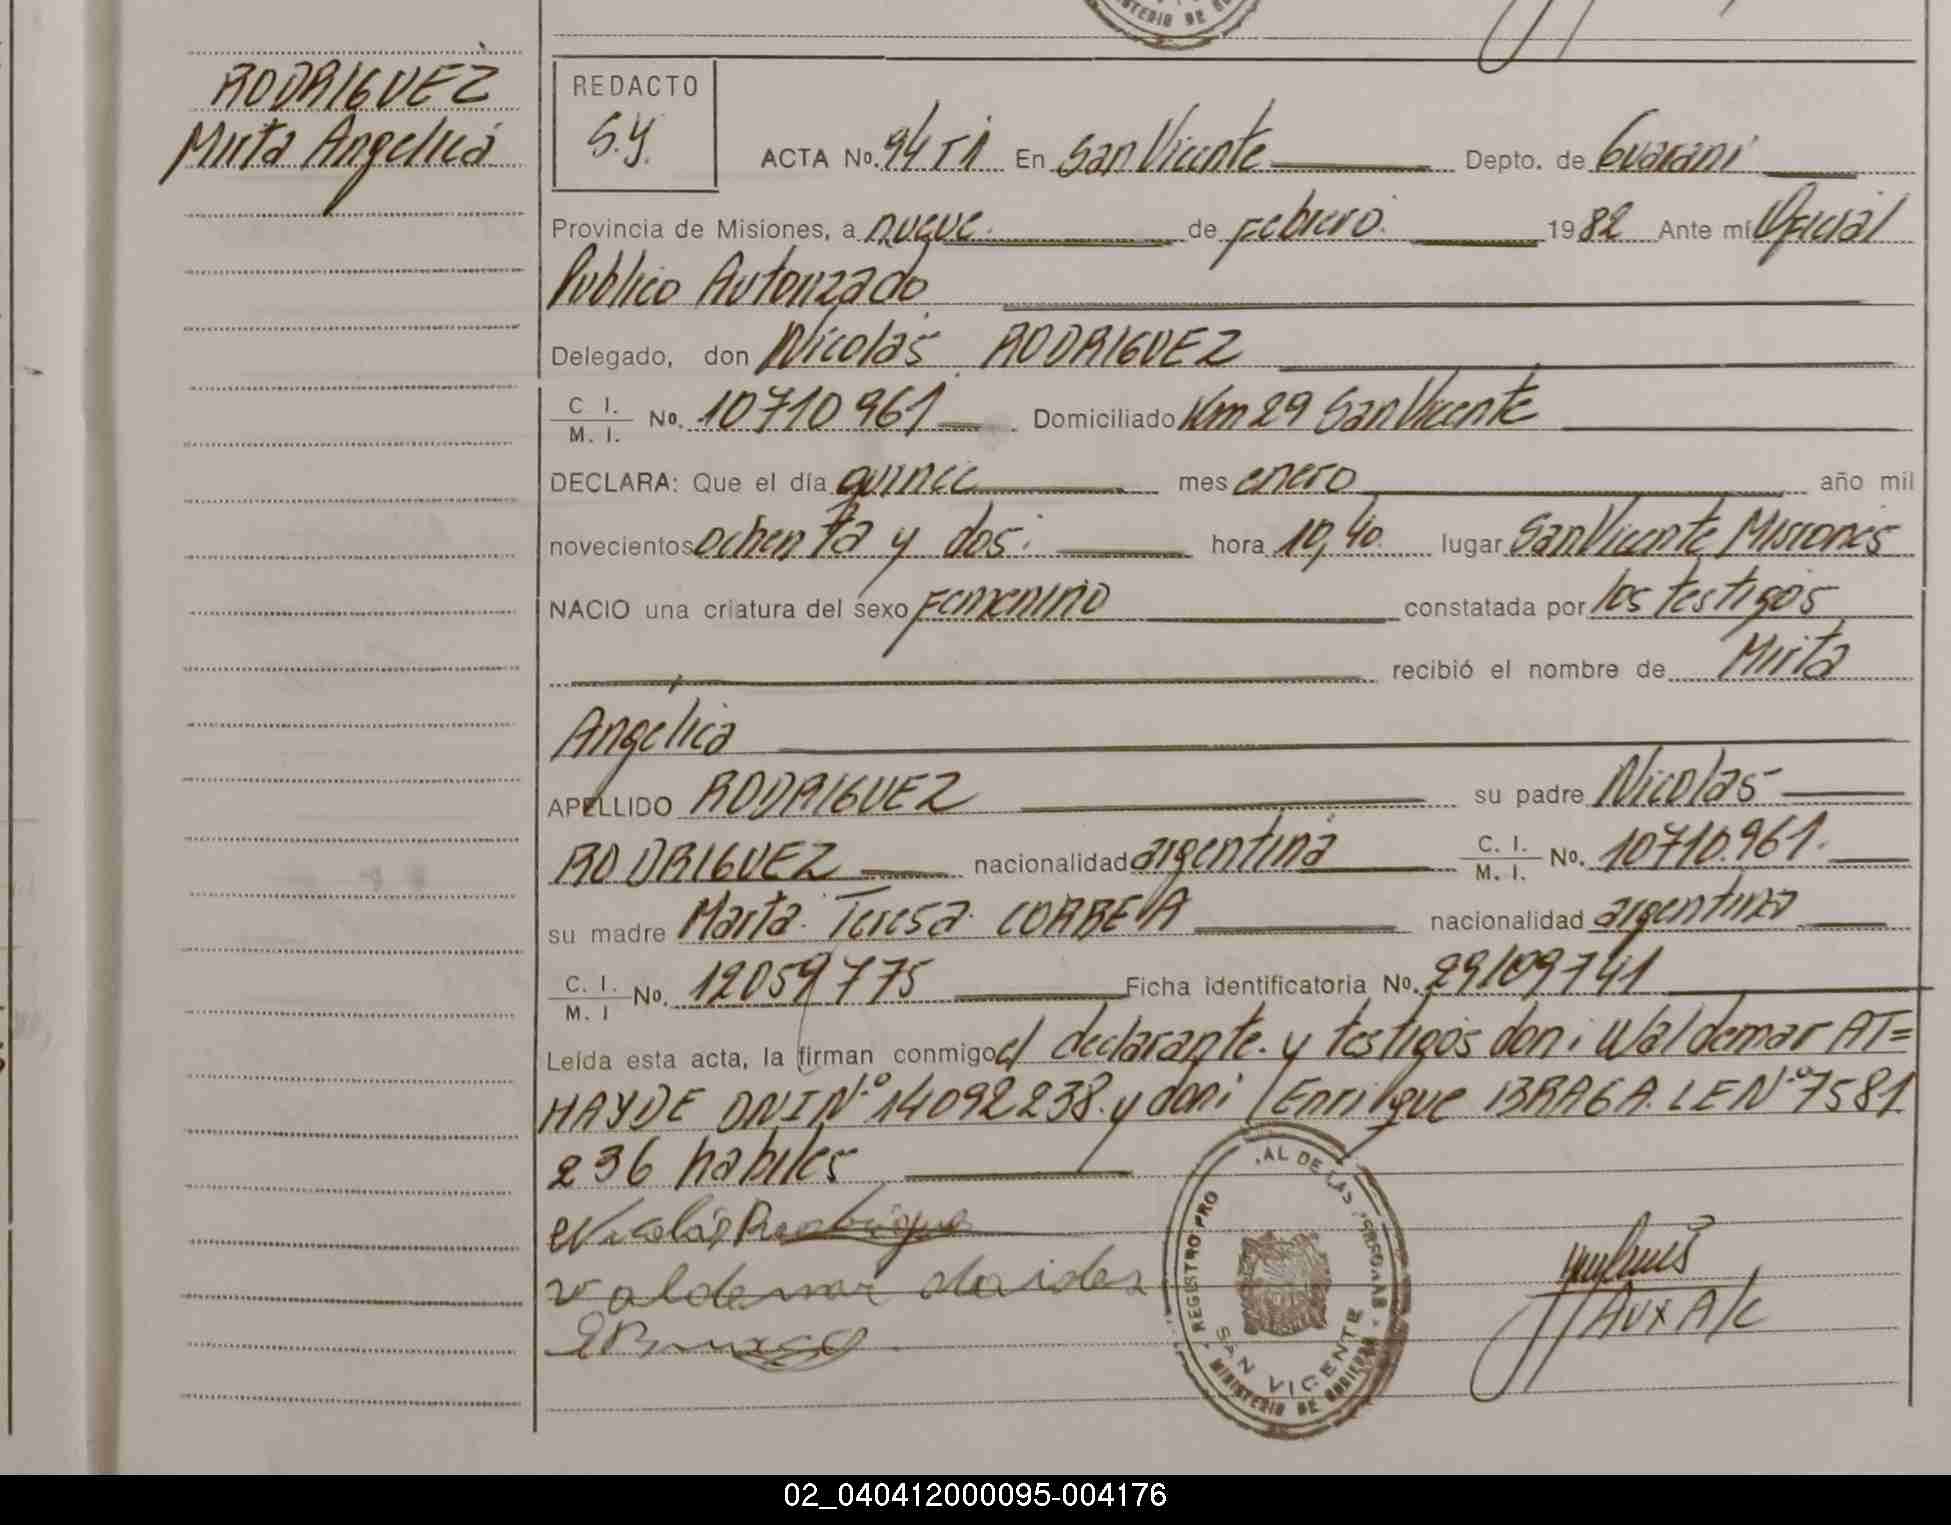 MINISTERIO DE
RODRIGUEZ
Mirta Angelica
REDACTO
S.Y.
ACTA No. 94 T1 En San Vicente Depto. de Guarani
Provincia de Misiones, a nueve. de Febrero. 1982 Ante mí Oficial
Publico Autorizado
Delegado, don Nicolas RODRIGUEZ
C I. / M. I. No. 10710961 Domiciliado Km 29 San Vicente
DECLARA: Que el día quince mes enero año mil
novecientos ochenta y dos. hora 10,40 lugar San Vicente Misiones
NACIO una criatura del sexo Femenino constatada por los testigos
recibió el nombre de Mirta
Angelica
APELLIDO RODRIGUEZ su padre Nicolas
RODRIGUEZ nacionalidad argentina C. I. / M. I. No. 10710.961.
su madre Marta Teresa CORREA nacionalidad argentina
C. I. / M. I No. 12059775 Ficha identificatoria No. 29109741
Leída esta acta, la firman conmigo el declarante. y testigos don: Waldemar AT=
HAYDE DNI Nº 14092238. y don: Enrique BRAGA. LE Nº 7581
236 habiles
Nicolás Rodrigue
Valdemar
REGISTRO PRO AL DE LAS PERSONAS
SAN VICENTE
MINISTERIO DE GOBIERNO
Aux A/C
02_040412000095-004176